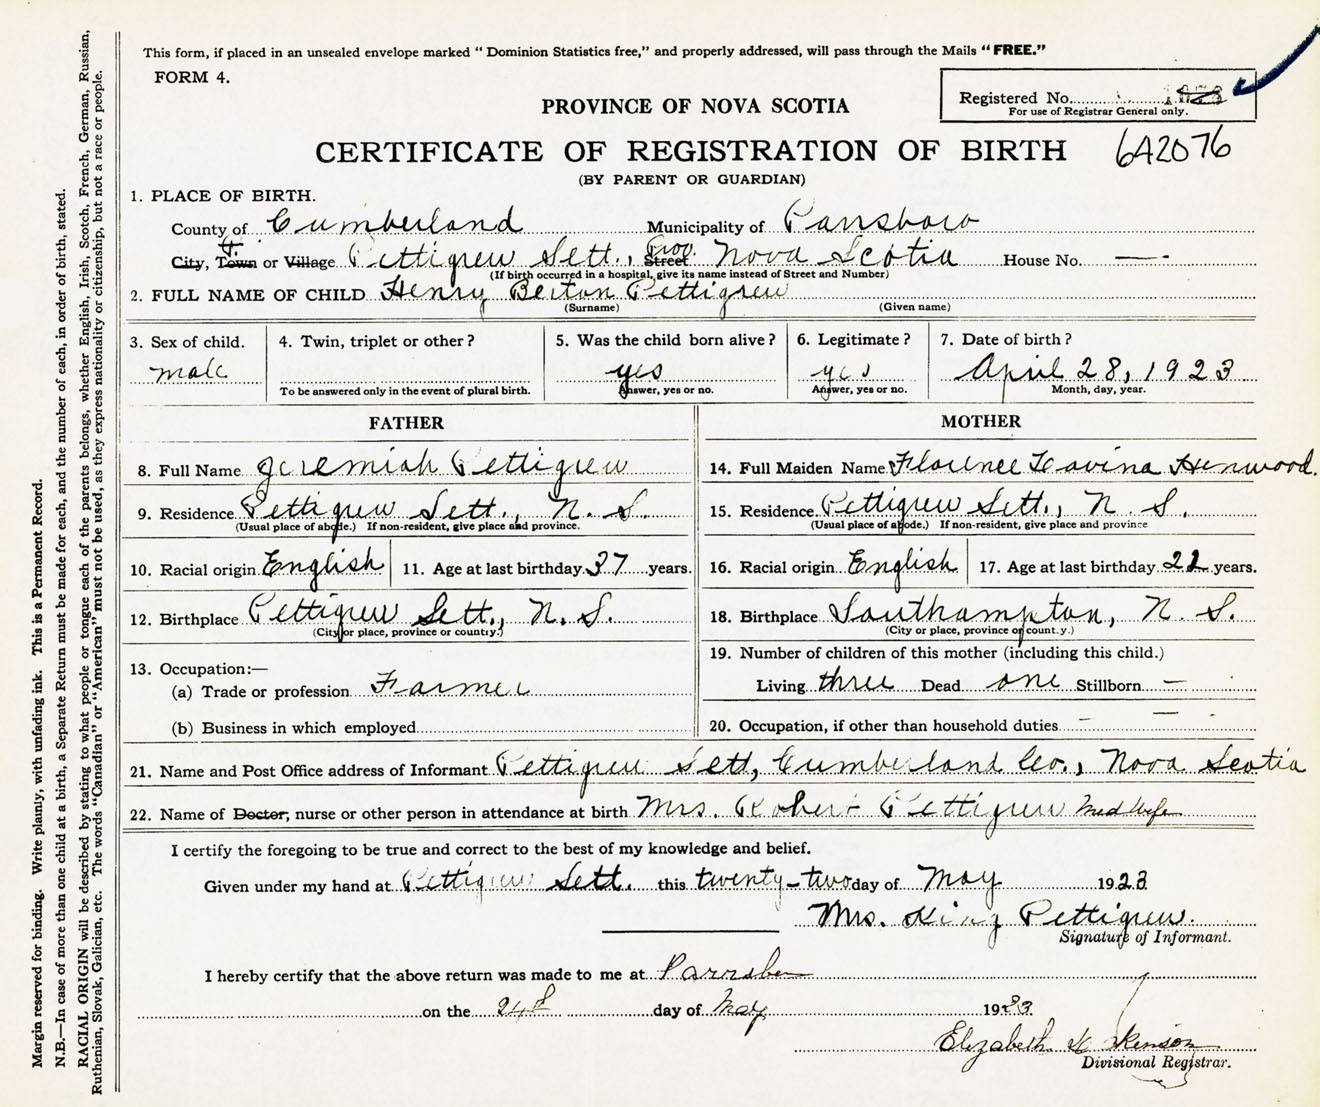 This form, if placed in an unsealed envelope marked “ Dominion Statistics free,” and properly addressed, will pass through the Mails “ FREE.”
FORM 4.
Registered No.
For use of Registrar General only.
PROVINCE OF NOVA SCOTIA
CERTIFICATE OF REGISTRATION OF BIRTH 642076
(BY PARENT OR GUARDIAN)
1. PLACE OF BIRTH.
County of Cumberland Municipality of Parrsboro
City, Town or Village Pettigrew Sett., Street Prov. Nova Scotia House No. —
(If birth occurred in a hospital, give its name instead of Street and Number)
2. FULL NAME OF CHILD Henry Berton Pettigrew
(Surname) (Given name)
3. Sex of child. 4. Twin, triplet or other? 5. Was the child born alive? 6. Legitimate? 7. Date of birth?
male yes yes April 28, 1923
To be answered only in the event of plural birth. Answer, yes or no. Answer, yes or no. Month, day, year.
FATHER MOTHER
8. Full Name Jeremiah Pettigrew 14. Full Maiden Name Florence Lavina Henwood.
9. Residence Pettigrew Sett., N. S. 15. Residence Pettigrew Sett., N. S.
(Usual place of abode.) If non-resident, give place and province. (Usual place of abode.) If non-resident, give place and province
10. Racial origin English 11. Age at last birthday 37 years. 16. Racial origin English 17. Age at last birthday years.
12. Birthplace Pettigrew Sett., N. S. 18. Birthplace Southampton, N. S.
(City or place, province or country.) (City or place, province or country.)
19. Number of children of this mother (including this child.)
13. Occupation:—
(a) Trade or profession Farmer Living three Dead one Stillborn —
(b) Business in which employed 20. Occupation, if other than household duties —
21. Name and Post Office address of Informant Pettigrew Sett, Cumberland Co., Nova Scotia
22. Name of Doctor, nurse or other person in attendance at birth Mrs. Robert Pettigrew
I certify the foregoing to be true and correct to the best of my knowledge and belief.
Given under my hand at Pettigrew Sett. this twenty-two day of May 1923
Mrs. King Pettigrew.
Signature of Informant.
I hereby certify that the above return was made to me at
on the 24 day of May 1923
Elizabeth
Divisional Registrar.
Margin reserved for binding. Write plainly, with unfading ink. This is a Permanent Record.
N.B.—In case of more than one child at a birth, a Separate Return must be made for each, and the number of each, in order of birth, stated.
RACIAL ORIGIN will be described by stating to what people or tongue each of the parents belongs, whether English, Irish, Scotch, French, German, Russian,
Ruthenian, Slovak, Galician, etc. The words “Canadian” or “American” must not be used, as they express nationality or citizenship, but not a race or people.